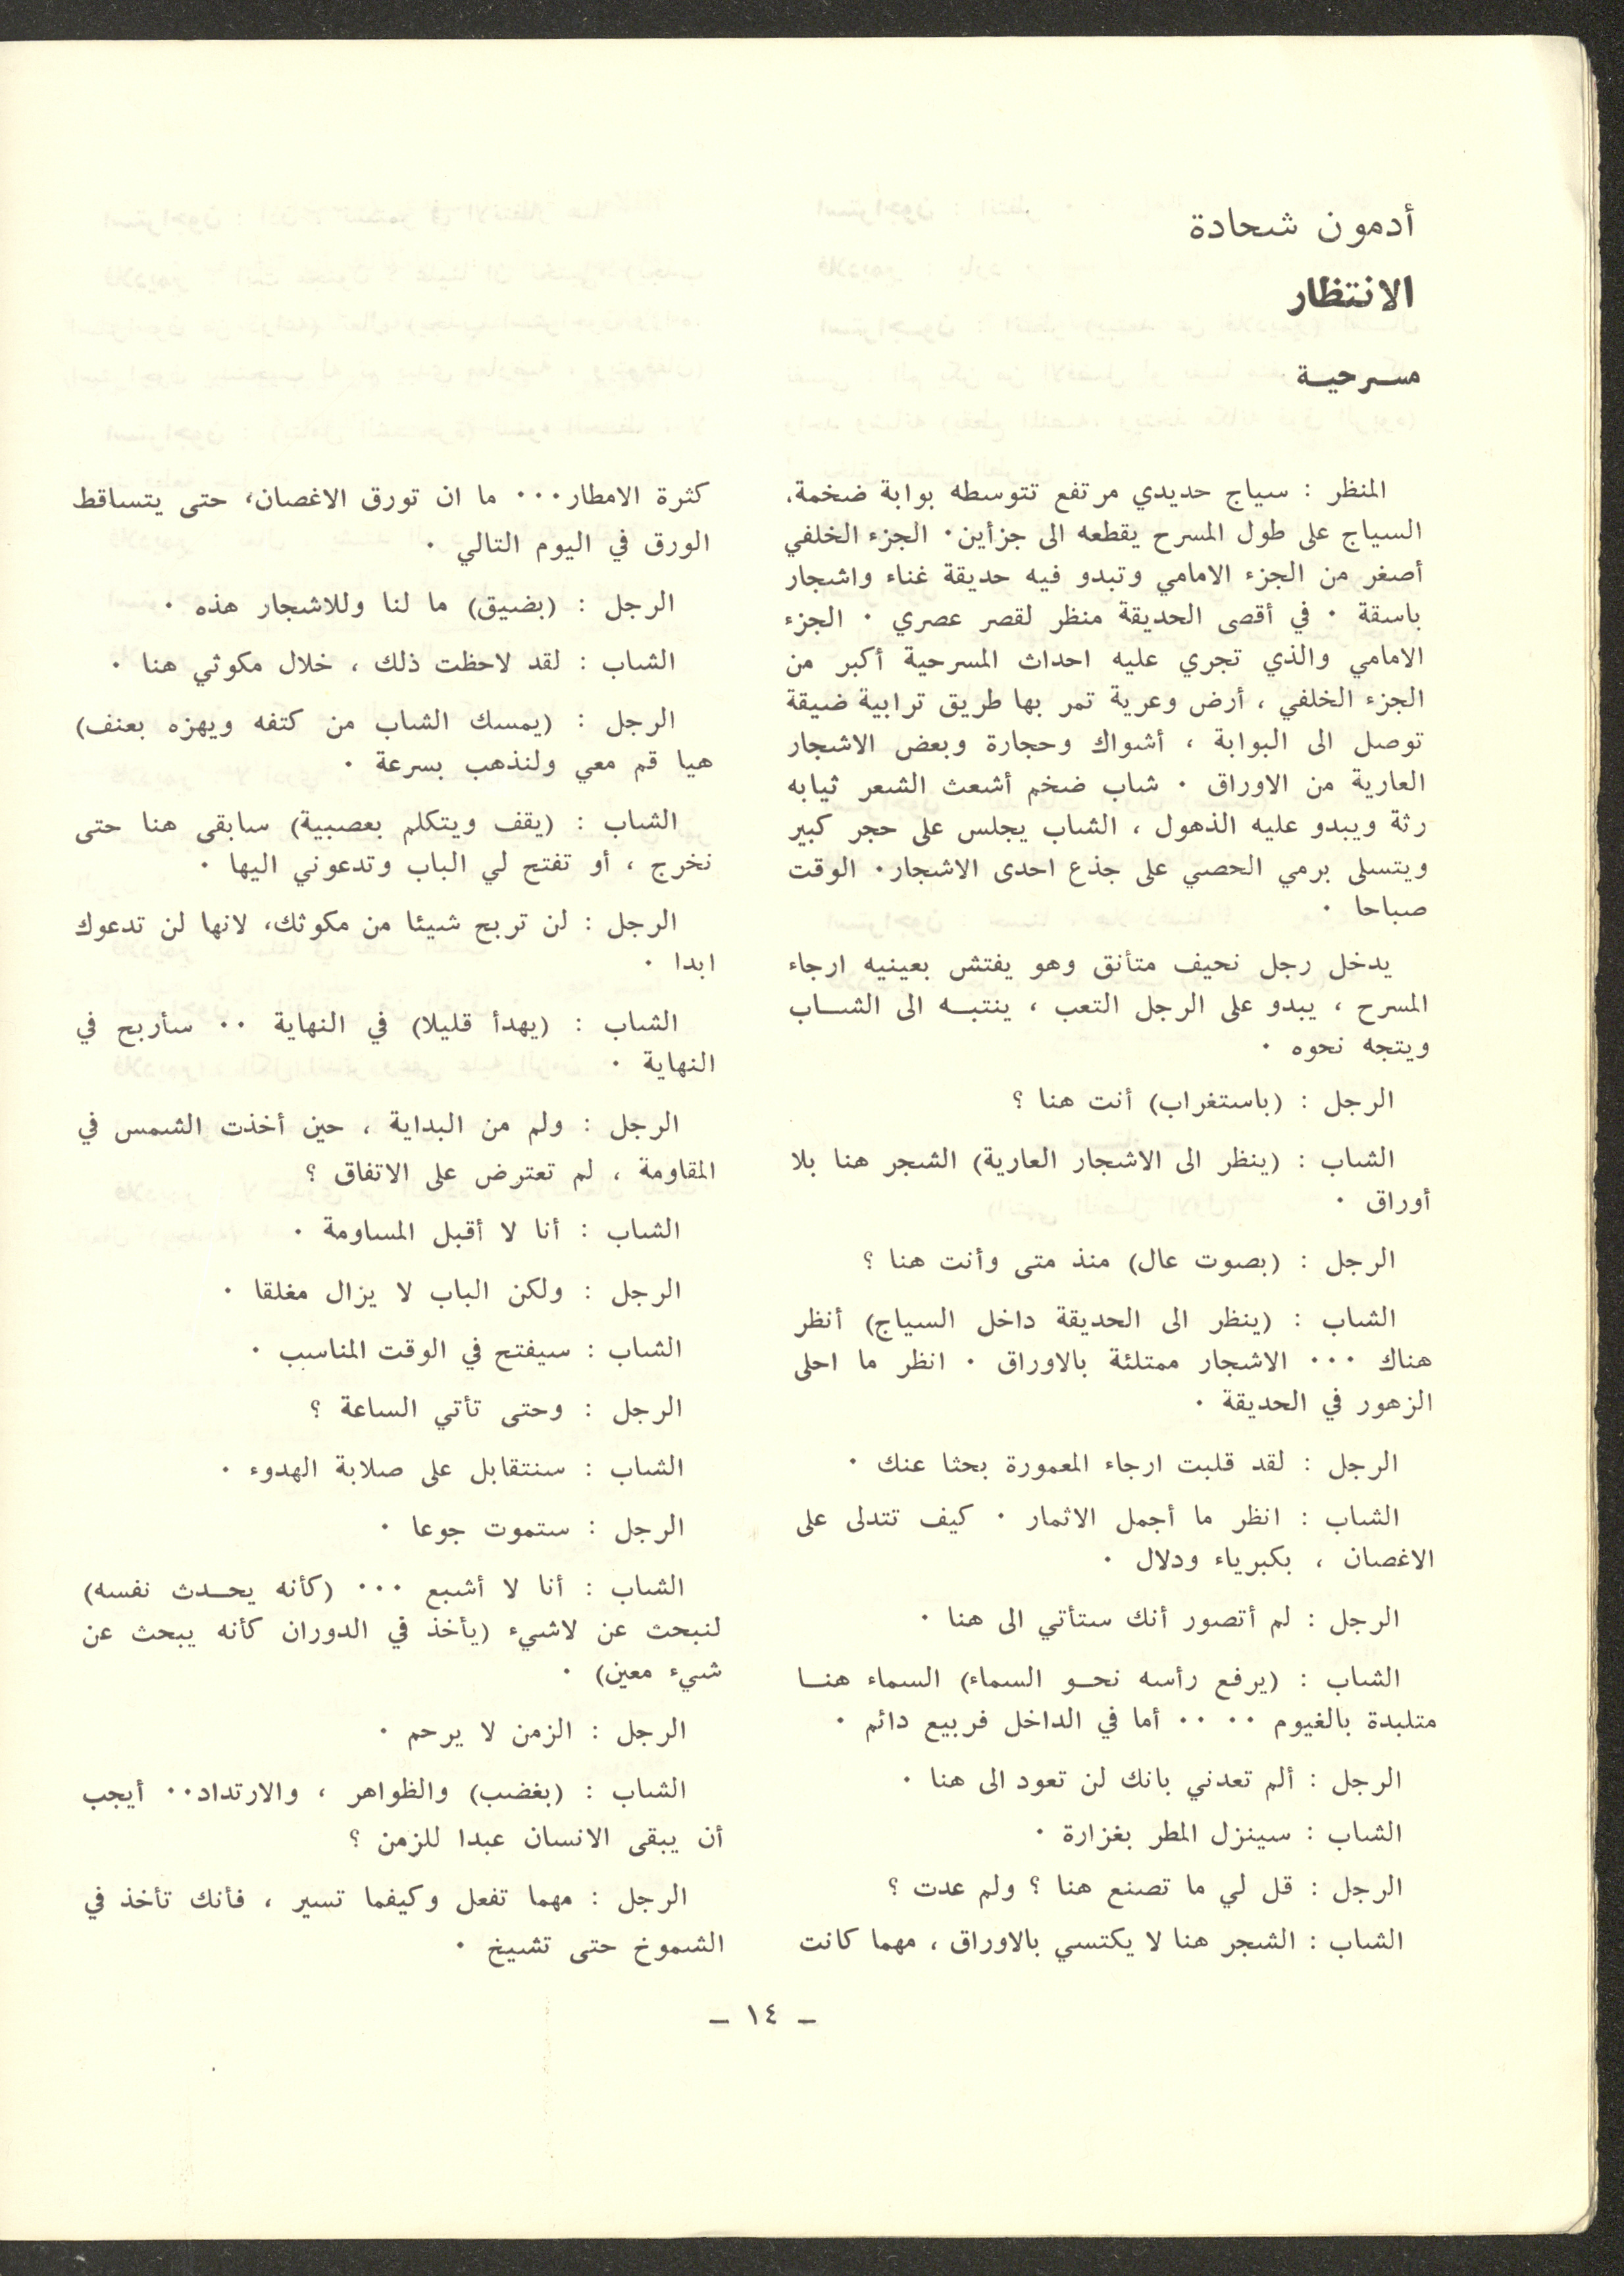 أدمون شحادة
الانتظار
مسرحية
المنظر : سياج حديدي مرتفع تتوسطه بوابة ضخمة،
السياج على طول المسرح يقطعه الى جزأين٠ الجزء الخلفي
أصغر من الجزء الامامي وتبدو فيه حديقة غناء واشجار
باسقة ٠ في أقصى الحديقة منظر لقصر عصري ٠ الجزء
الامامي والذي تجري عليه احداث المسرحية أكبر من
الجزء الخلفي ، أرض وعرية تمر بها طريق ترابية ضيقة
توصل الى البوابة ، أشواك وحجارة وبعض الاشجار
العارية من الاوراق ٠ شاب ضخم أشعث الشعر ثيابه
رثة ويبدو عليه الذهول ، الشاب يجلس على حجر كبير
ويتسلى برمي الحصي على جذع احدى الاشجار٠ الوقت
صباحا ٠
يدخل رجل نحيف متأنق وهو يفتش بعينيه ارجاء
المسرح ، يبدو على الرجل التعب ، ينتبه الى الشاب
ويتجه نحوه ٠
الرجل : (باستغراب) أنت هنا ؟
الشاب : (ينظر الى الاشجار العارية) الشجر هنا بلا
أوراق ٠
الرجل : (بصوت عال) منذ متى وأنت هنا ؟
الشاب : (ينظر الى الحديقة داخل السياج) أنظر
هناك ٠٠٠ الاشجار ممتلئة بالاوراق ٠ انظر ما احلى
الزهور في الحديقة ٠
الرجل : لقد قلبت ارجاء المعمورة بحثا عنك ٠
الشاب : انظر ما أجمل الاثمار ٠ كيف تتدلى على
الاغصان ، بكبرياء ودلال ٠
الرجل : لم أتصور أنك ستأتي الى هنا ٠
الشاب : (يرفع رأسه نحو السماء) السماء هنا
متلبدة بالغيوم ٠٠ ٠٠ أما في الداخل فربيع دائم ٠
الرجل : ألم تعدني بانك لن تعود الى هنا ٠
الشاب : سينزل المطر بغزارة ٠
الرجل : قل لي ما تصنع هنا ؟ ولم عدت ؟
الشاب : الشجر هنا لا يكتسي بالاوراق ، مهما كانت
كثرة الامطار٠٠٠ ما ان تورق الاغصان، حتى يتساقط
الورق في اليوم التالي ٠
الرجل : (بضيق) ما لنا وللاشجار هذه ٠
الشاب : لقد لاحظت ذلك ، خلال مكوثي هنا ٠
الرجل : (يمسك الشاب من كتفه ويهزه بعنف)
هيا قم معي ولنذهب بسرعة ٠
الشاب : (يقف ويتكلم بعصبية) سابقى هنا حتى
نخرج ، أو تفتح لي الباب وتدعوني اليها ٠
الرجل : لن تربح شيئا من مكوثك، لانها لن تدعوك
ابدا ٠
الشاب : (يهدأ قليلا) في النهاية ٠٠ سأربح في
النهاية ٠
الرجل : ولم من البداية ، حين أخذت الشمس في
المقاومة ، لم تعترض على الاتفاق ؟
الشاب : أنا لا أقبل المساومة ٠
الرجل : ولكن الباب لا يزال مغلقا ٠
الشاب : سيفتح في الوقت المناسب ٠
الرجل : وحتى تأتي الساعة ؟
الشاب : سنتقابل على صلابة الهدوء ٠
الرجل : ستموت جوعا ٠
الشاب : أنا لا أشبع ٠٠٠ (كأنه يحدث نفسه)
لنبحث عن لاشيء (يأخذ في الدوران كأنه يبحث عن
شيء معين) ٠
الرجل : الزمن لا يرحم ٠
الشاب : (بغضب) والظواهر ، والارتداد٠٠ أيجب
أن يبقى الانسان عبدا للزمن ؟
الرجل : مهما تفعل وكيفما تسير ، فأنك تأخذ في
الشموخ حتى تشيخ ٠
– ١٤ –